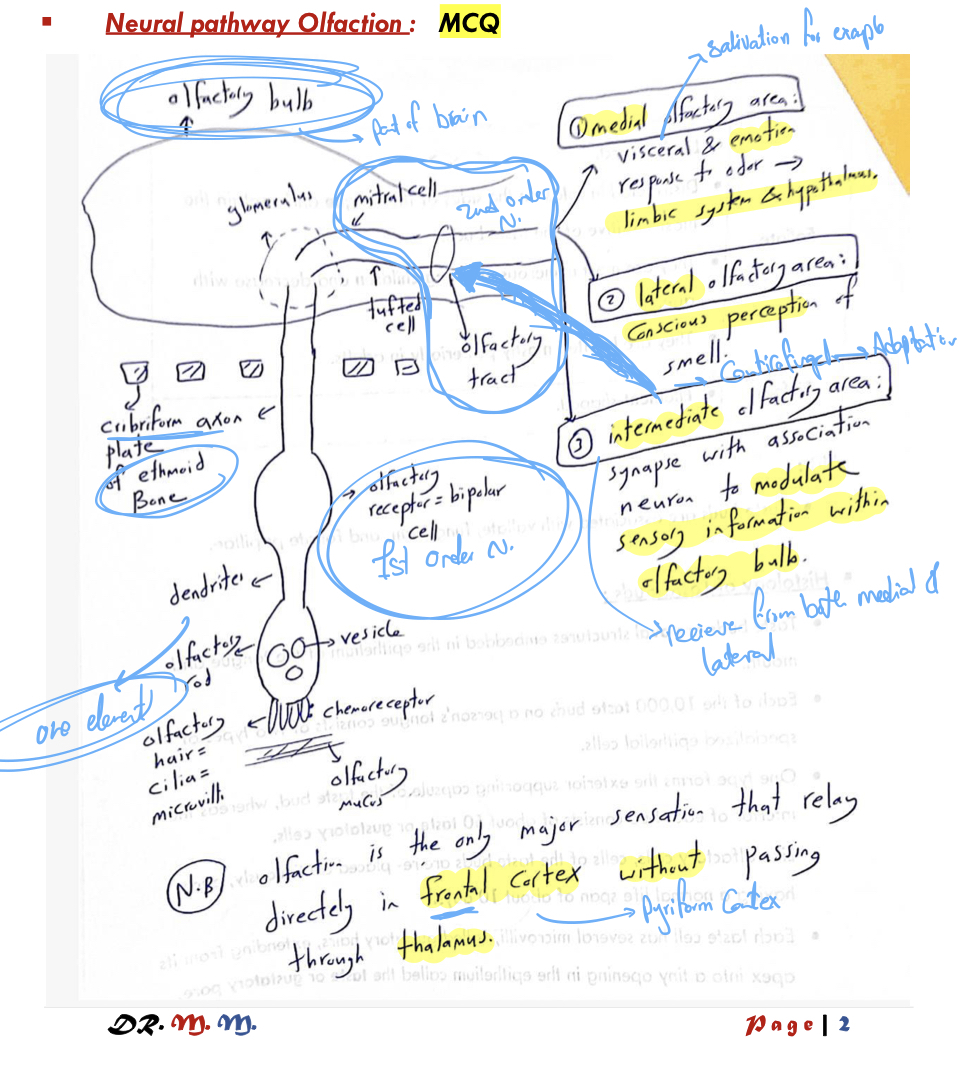 ▪ Neural pathway Olfaction : MCQ
salivation for examp
olfactory bulb
part of brain
① medial olfactory area:
visceral & emotion
response to odor →
limbic system & hypothalamus.
glomerulus
mitral cell
2nd order
N.
tufted
cell
olfactory
tract
② lateral olfactory area:
Conscious perception of
smell.
→ Adaptation
③ intermediate olfactory area:
synapse with association
neuron to modulate
sensory information within
olfactory bulb.
recieve from both medial &
lateral
cribriform
plate
of ethmoid
Bone
axon
olfactory
receptor = bipolar
cell
1st order N.
dendrites
one element
olfactory
rod
vesicle
olfactory
hair =
cilia =
microvilli
chemoreceptor
olfactory
mucus
N.B
olfaction is the only major sensation that relay
directely in frontal Cortex without passing
through thalamus.
→ Pyriform Cortex
DR. M. M.
Page | 2